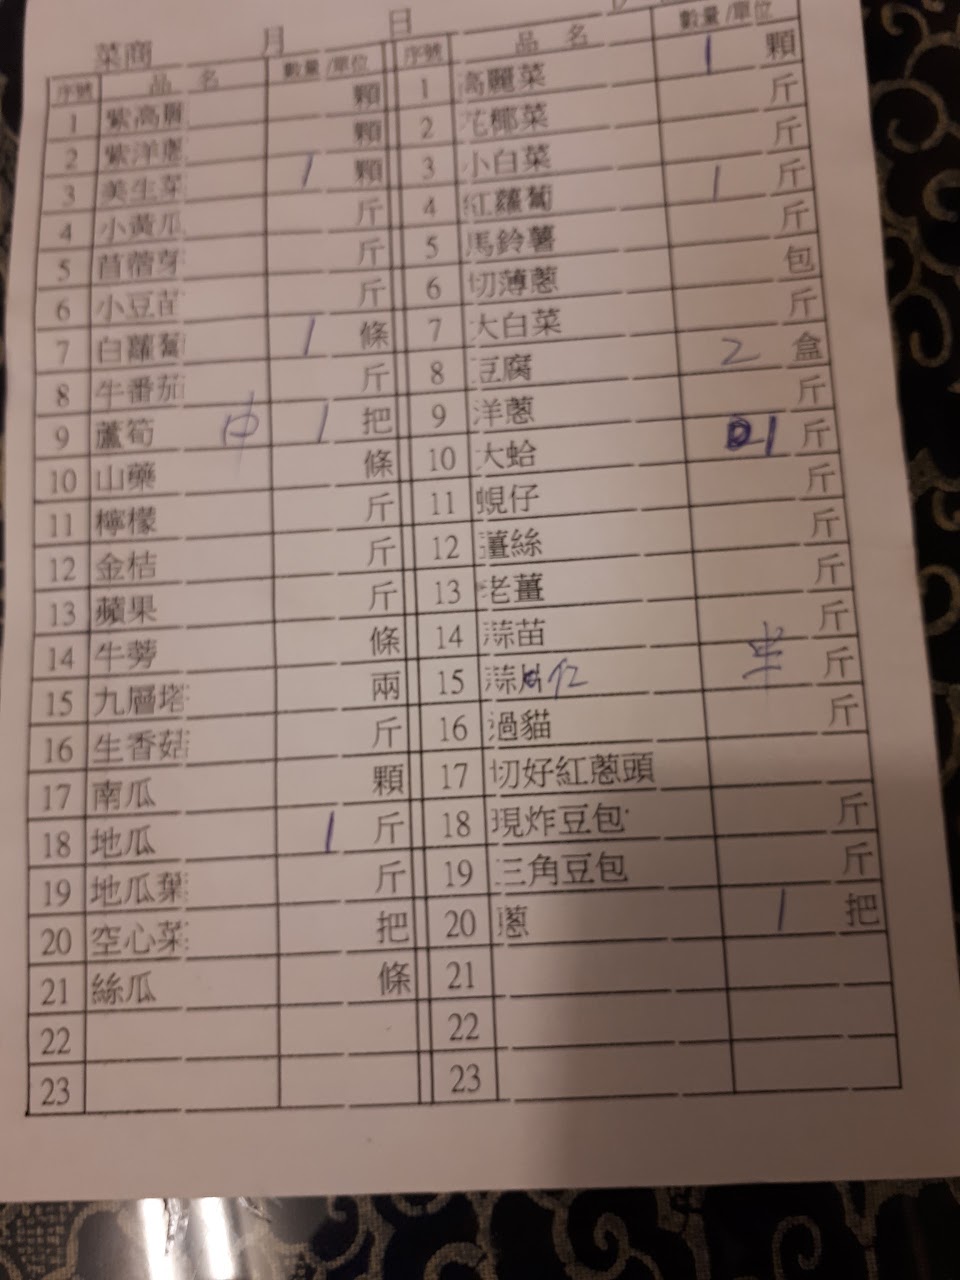 菜商 月 日
序號 品名 數量/單位 序號 品名 數量/單位
1 紫高麗 顆 1 高麗菜 1 顆
2 紫洋蔥 顆 2 花椰菜 斤
3 美生菜 1 顆 3 小白菜 斤
4 小黃瓜 斤 4 紅蘿蔔 1 斤
5 苜蓿芽 斤 5 馬鈴薯 斤
6 小豆苗 斤 6 切薄蔥 包
7 白蘿蔔 1 條 7 大白菜 斤
8 牛番茄 斤 8 豆腐 2 盒
9 蘆筍 中 1 把 9 洋蔥 斤
10 山藥 條 10 大蛤 1 斤
11 檸檬 斤 11 蜆仔 斤
12 金桔 斤 12 薑絲 斤
13 蘋果 斤 13 老薑 斤
14 牛蒡 條 14 蒜苗 斤
15 九層塔 兩 15 蒜仁 半 斤
16 生香菇 斤 16 過貓 斤
17 南瓜 顆 17 切好紅蔥頭
18 地瓜 1 斤 18 現炸豆包 斤
19 地瓜葉 斤 19 三角豆包 斤
20 空心菜 把 20 蔥 1 把
21 絲瓜 條 21
22 22
23 23